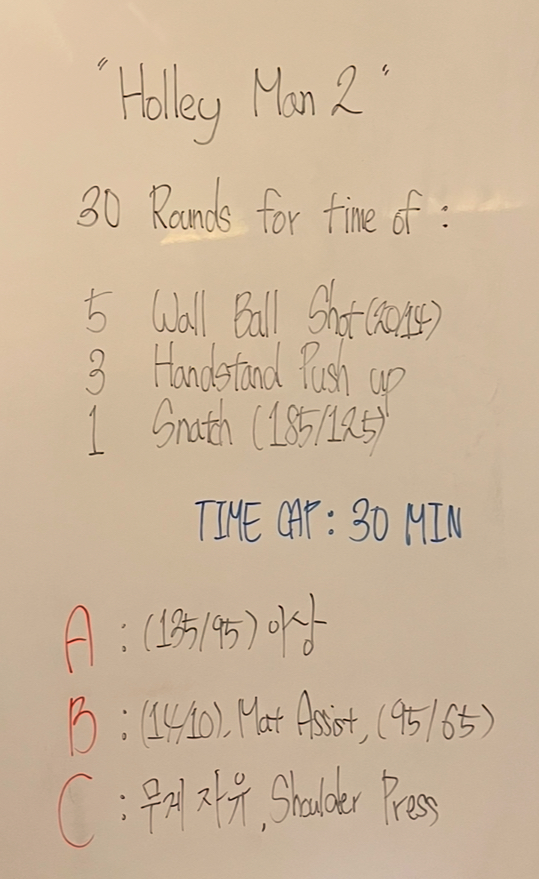 "Holley Man 2"
30 Rounds for time of :
5 Wall Ball Shot (20/14)
3 Handstand Push up
1 Snatch (185/125)
TIME CAP : 30 MIN
A : (135/95) 이상
B : (14/10), Mat Assist, (95/65)
C : 무게 자유, Shoulder Press